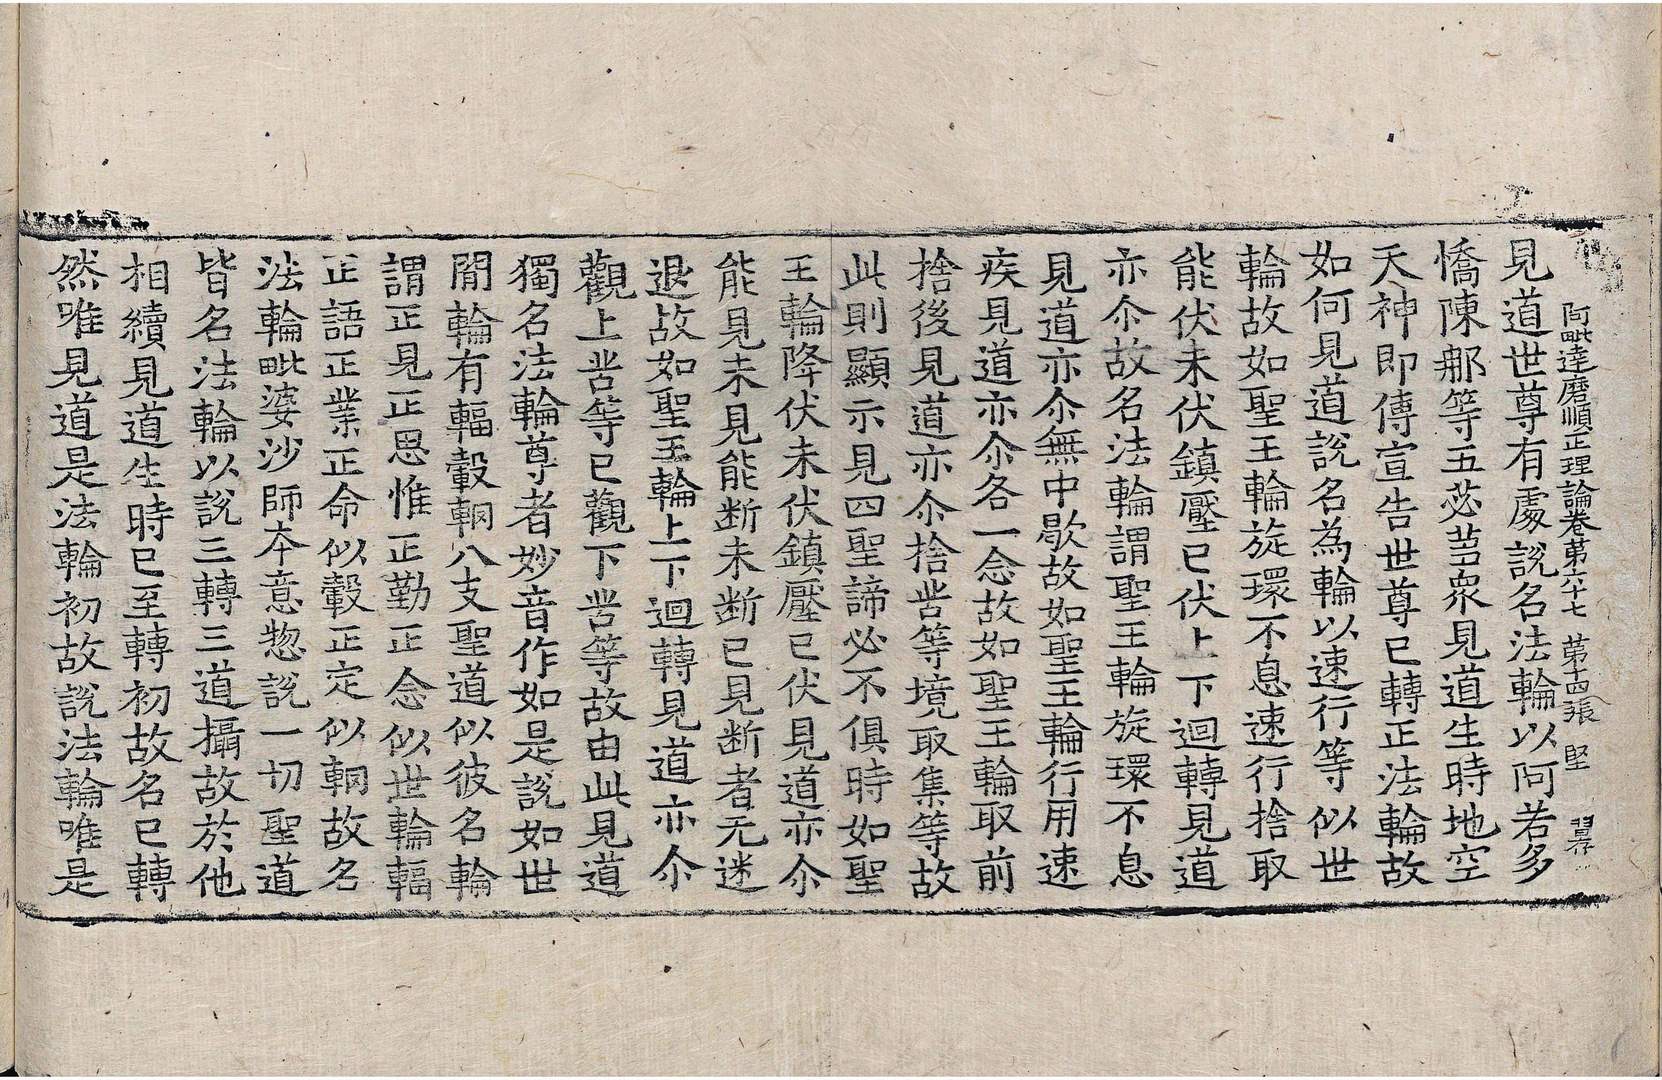 阿毗達磨順正理論卷第六十七 第十四張 堅
見道世尊有處說名法輪以阿若多
憍陳那等五苾芻衆見道生時地空
天神即傳宣告世尊已轉正法輪故
如何見道說名為輪以速行等似世
輪故如聖王輪旋環不息速行捨取
能伏未伏鎮壓已伏上下迴轉見道
亦尒故名法輪謂聖王輪旋環不息
見道亦尒無中歇故如聖王輪行用速
疾見道亦尒各一念故如聖王輪取前
捨後見道亦尒捨苦等境取集等故
此則顯示見四聖諦必不俱時如聖
王輪降伏未伏鎮壓已伏見道亦尒
能見未見能断未断已見断者无迷
退故如聖王輪上下迴轉見道亦尒
觀上苦等已觀下苦等故由此見道
獨名法輪尊者妙音作如是說如世
閒輪有輻轂輞八支聖道似彼名輪
謂正見正思惟正勤正念似世輪輻
正語正業正命似轂正定似輞故名
法輪毗婆沙師本意惣說一切聖道
皆名法輪以說三轉三道攝故於他
相續見道生時已至轉初故名已轉
然唯見道是法輪初故說法輪唯是